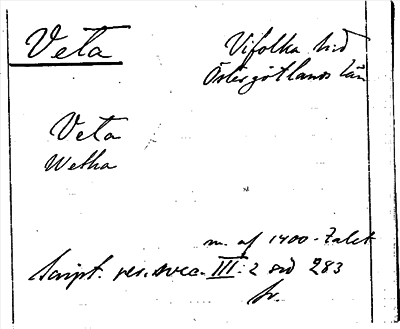 Veta
Vifolka hd
Östergötlands län
Veta
Wetha
m. af 1400-talet
Script. rer. svec. III:2 sid 283